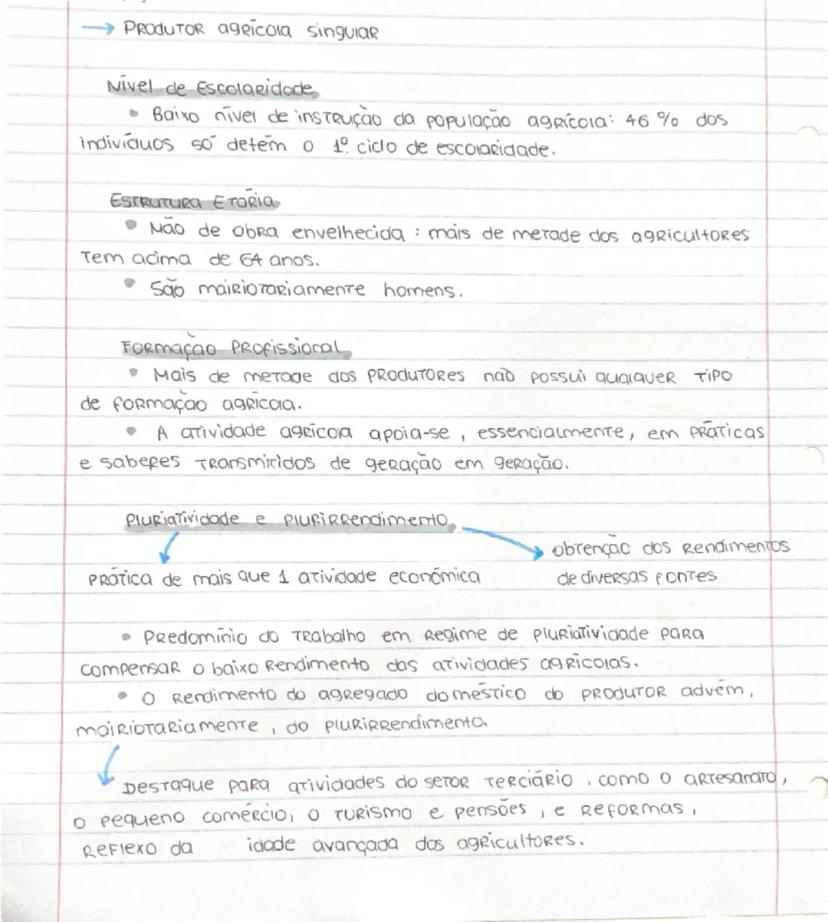 → Produtor agrícola singular
Nível de Escolaridade
• Baixo nível de instrução da população agrícola: 46 % dos
indivíduos só detém o 1º ciclo de escolaridade.
Estrutura Etária
• Mão de obra envelhecida : mais de metade dos agricultores
tem acima de 64 anos.
• São mairiotariamente homens.
Formação Profissional
• Mais de metade dos produtores não possui qualquer tipo
de formação agrícola.
• A atividade agrícola apoia-se , essencialmente, em práticas
e saberes transmitidos de geração em geração.
Pluriatividade e Plurirrendimento
obtenção dos rendimentos
de diversas fontes
Prática de mais que 1 atividade económica
• Predomínio do trabalho em regime de pluriatividade para
compensar o baixo rendimento das atividades agrícolas.
• O rendimento do agregado doméstico do produtor advém,
mairiotariamente , do plurirrendimento.
Destaque para atividades do setor terciário , como o artesanato,
o pequeno comércio, o turismo e pensões , e reformas ,
reflexo da idade avançada dos agricultores.